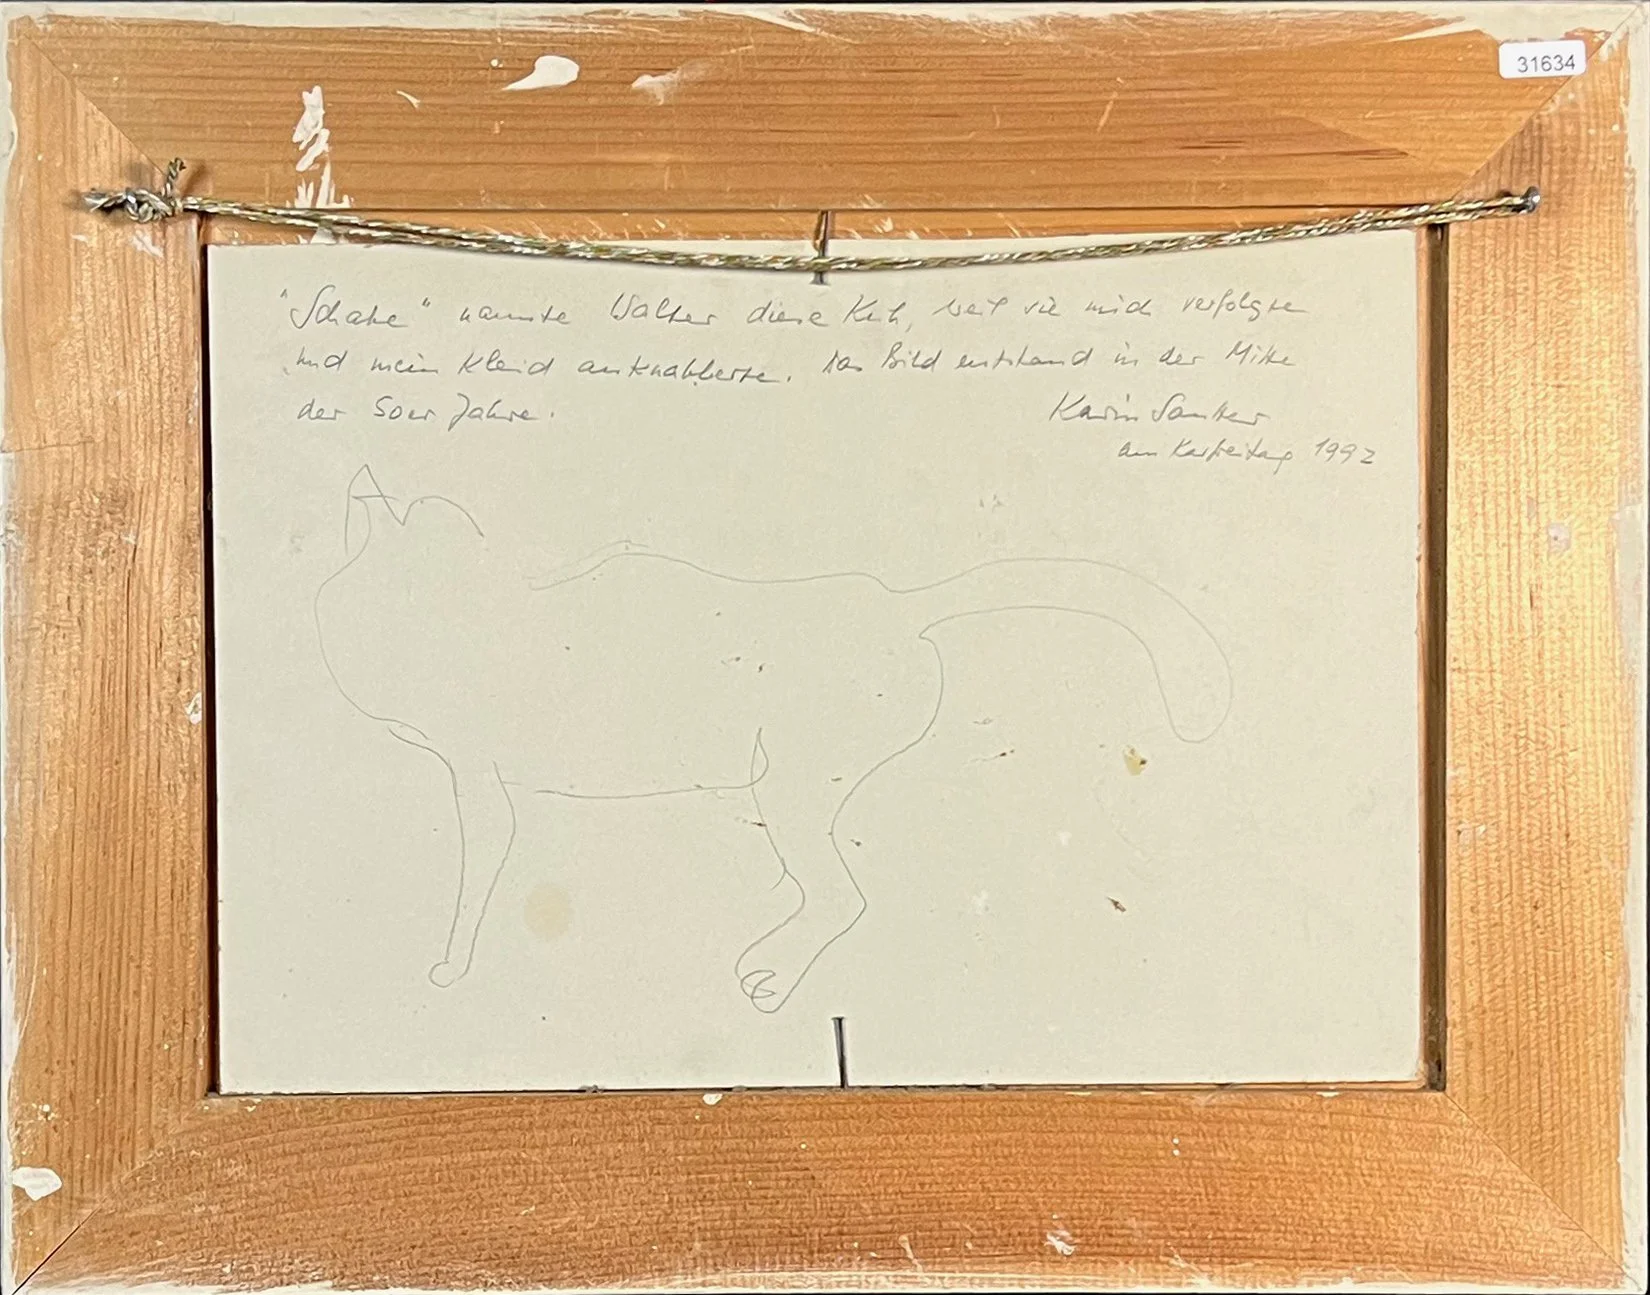 31634
"Schabe" nannte Walter diese Kuh, weil sie mich verfolgte
und mein Kleid anknabberte. Das Bild entstand in der Mitte
der 50er Jahre.
Karin
am Karfreitag 1992